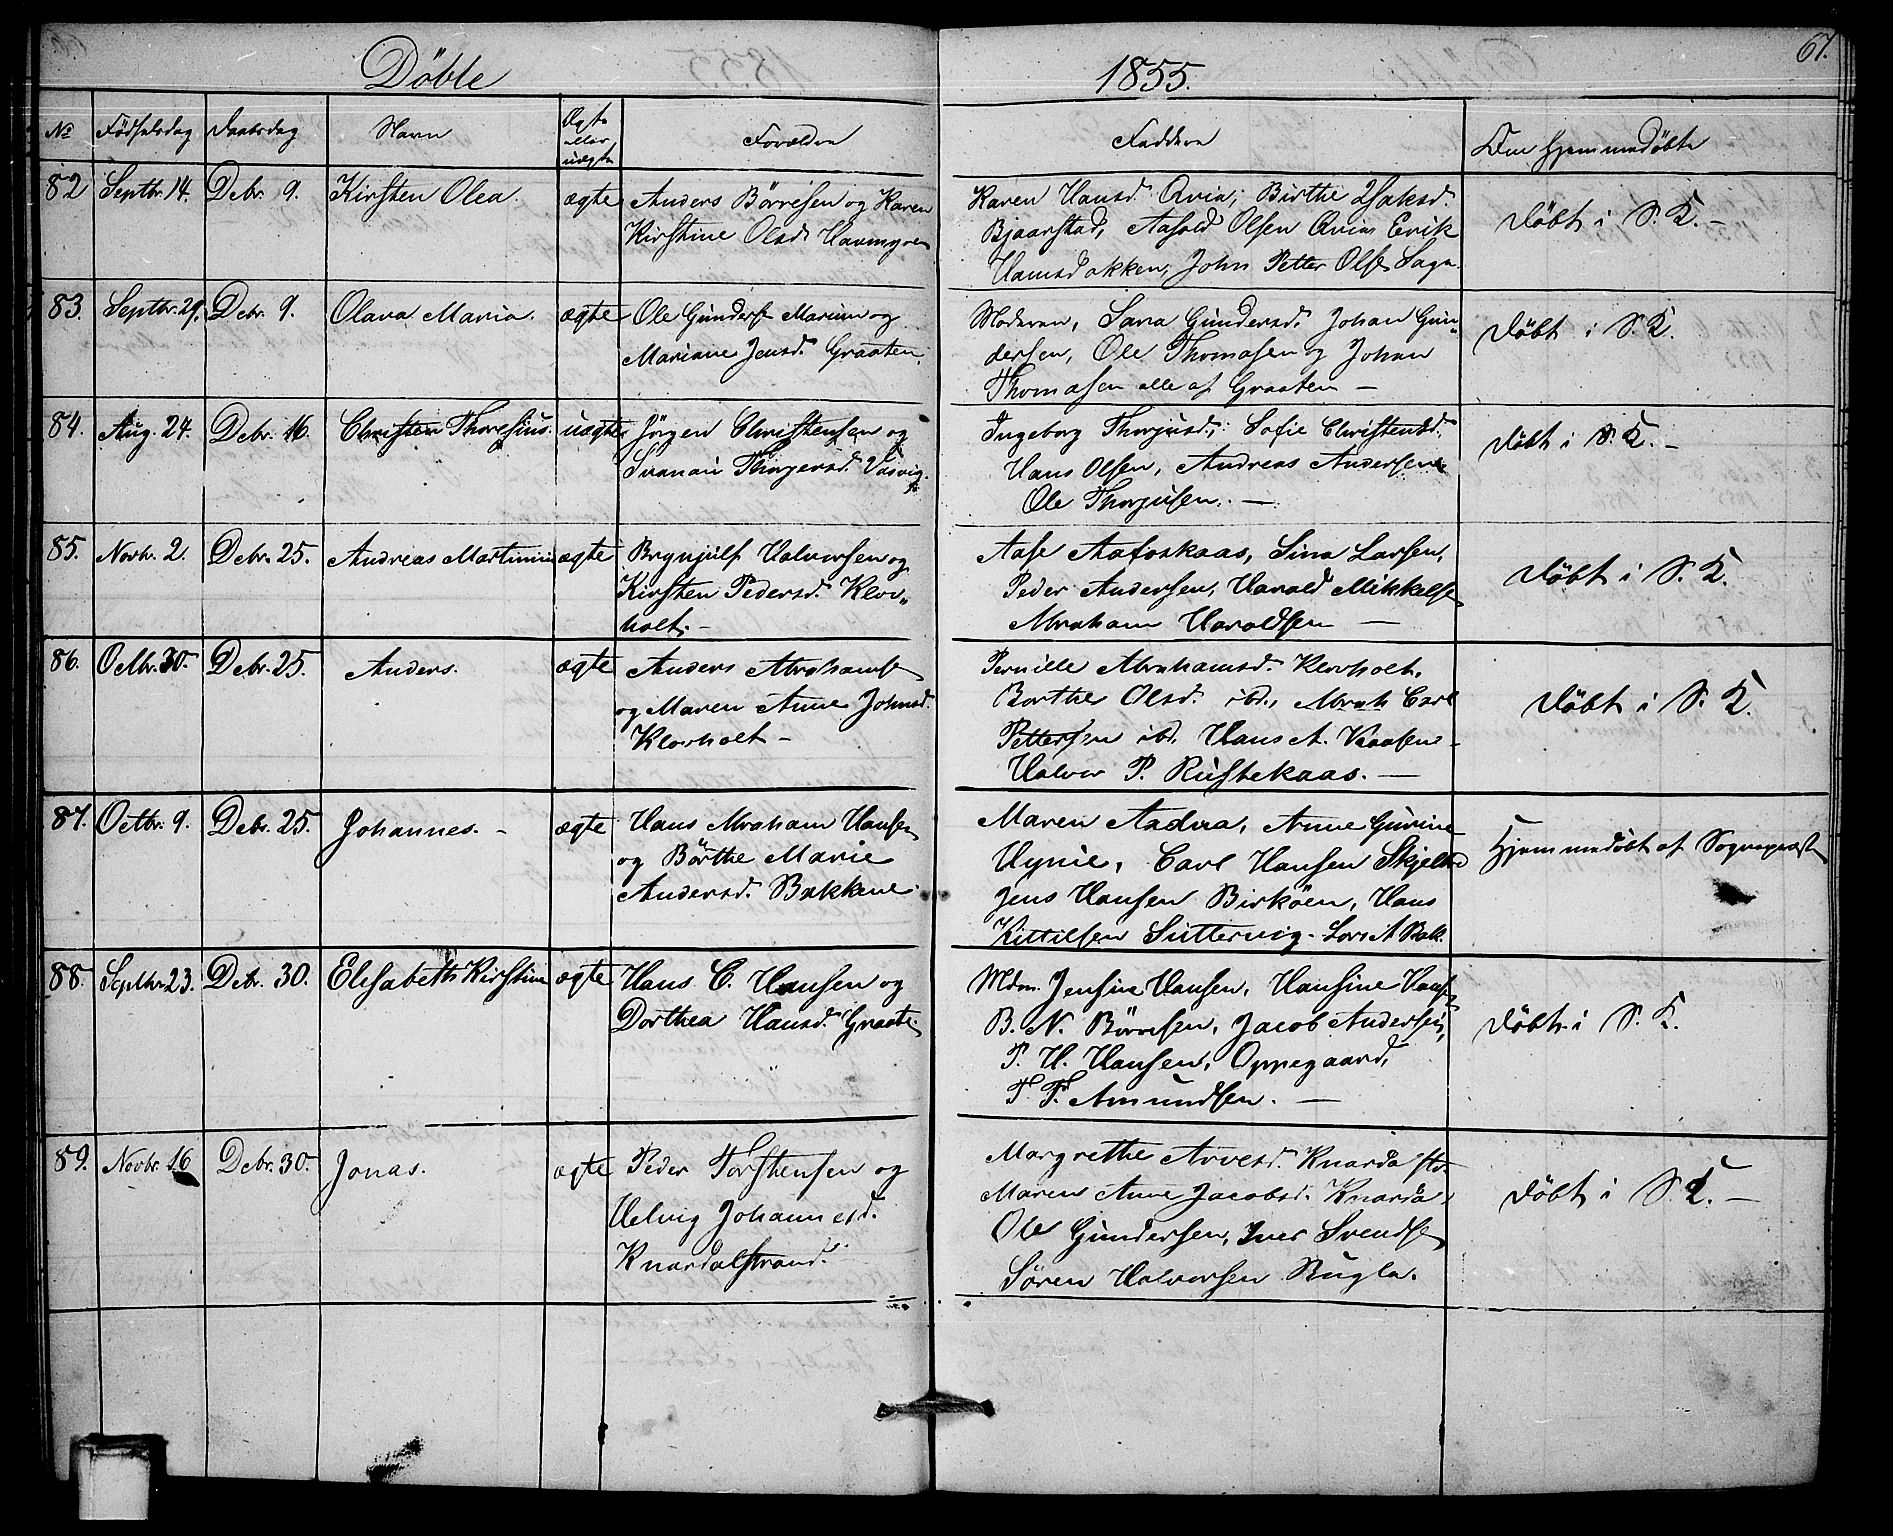 Döbte
1855.
67.
No Födselsdag Daabsdag Navn Ægte eller uægte Forældre Faddere Om Hjemmedöbte
82 Septbr. 14. Debr. 9. Kirsten Olea. ægte Anders Börresen og Karen
Kirstine Olsd. Havmyren
Karen Hansd. Qvia; Birthe Isaksd.
Bjaarstad, Aasold Olsen Erik
John Petter Olsen
Döbt i S. K. –
83. Septbr. 29. Debr. 9. Olava Maria. ægte Ole Gunders. og
Mariane Jensd. Graaten.
Moderen, Sara Gundersd. Johan Gun-
dersen, Ole Thomasen og Johan
Thomasen alle af Graaten –
Döbt i S. K.
84. Aug. 24. Debr. 16. Christen Thoresius. uægte Jörgen Christensen og
Thorjersd. Vasvig.
Ingeborg Thorjusd., Sofie Christensd.
Hans Olsen, Andreas Andersen
Ole Thorjusen. –
Döbt i S. K. –
85. Novbr. 2. Debr. 25. Andreas Martinius ægte Brynjulf Halvorsen og
Kirsten Pedersd. Klov-
holt. –
Aase Aafoskaas, Sina Larsen,
Peder Andersen, Harald Mikkelsen
Abraham Haraldsen –
Döbt i S. K.
86. Octbr. 30. Debr. 25. Anders. ægte Anders Abrahams.
og Maren Anne Johnsd.
Klovholt –
Pernille Abrahamsd. Klovholt,
Berthe Olsd. ibd., Abrah Carl
Pettersen ibd. Hans A. Kaasen –
Halvor P. Rustekaas. –
Döbt i S. K.
87. Octbr. 9. Debr. 25. Johannes. – ægte Hans Abraham Hansen
og Börthe Marie
Andersd. Bakkene.
Maren Aadna, Anne Gurine
Hynie, Carl Hansen
Jens Hansen Birköen, Hans
Kittilsen Suttervig – Lars A Bak.
Hjemmedöbt af Sognepræst
88. Septbr. 23. Debr. 30. Elisabeth Kirstine ægte Hans C. Hansen og
Dorthea Hansd. Graate.
Mdm. Jensine Hansen, Hansine Hans.
B. N. Börresen, Jacob Andersen,
P. H. Hansen, Oppegaard,
T. F. Amundsen. –
Döbt i S. K.
89. Novbr. 16 Debr. 30. Jonas. ægte Peder Torstensen og
Helvig Johannesd.
Knardalstrand.
Margrethe Arvesd. Knardalstr.
Maren Anne Jacobsd. Knarda,
Ole Gundersen, Iver Svendsen
Sören Halvorsen Rugla.
Döbt i S. K. –